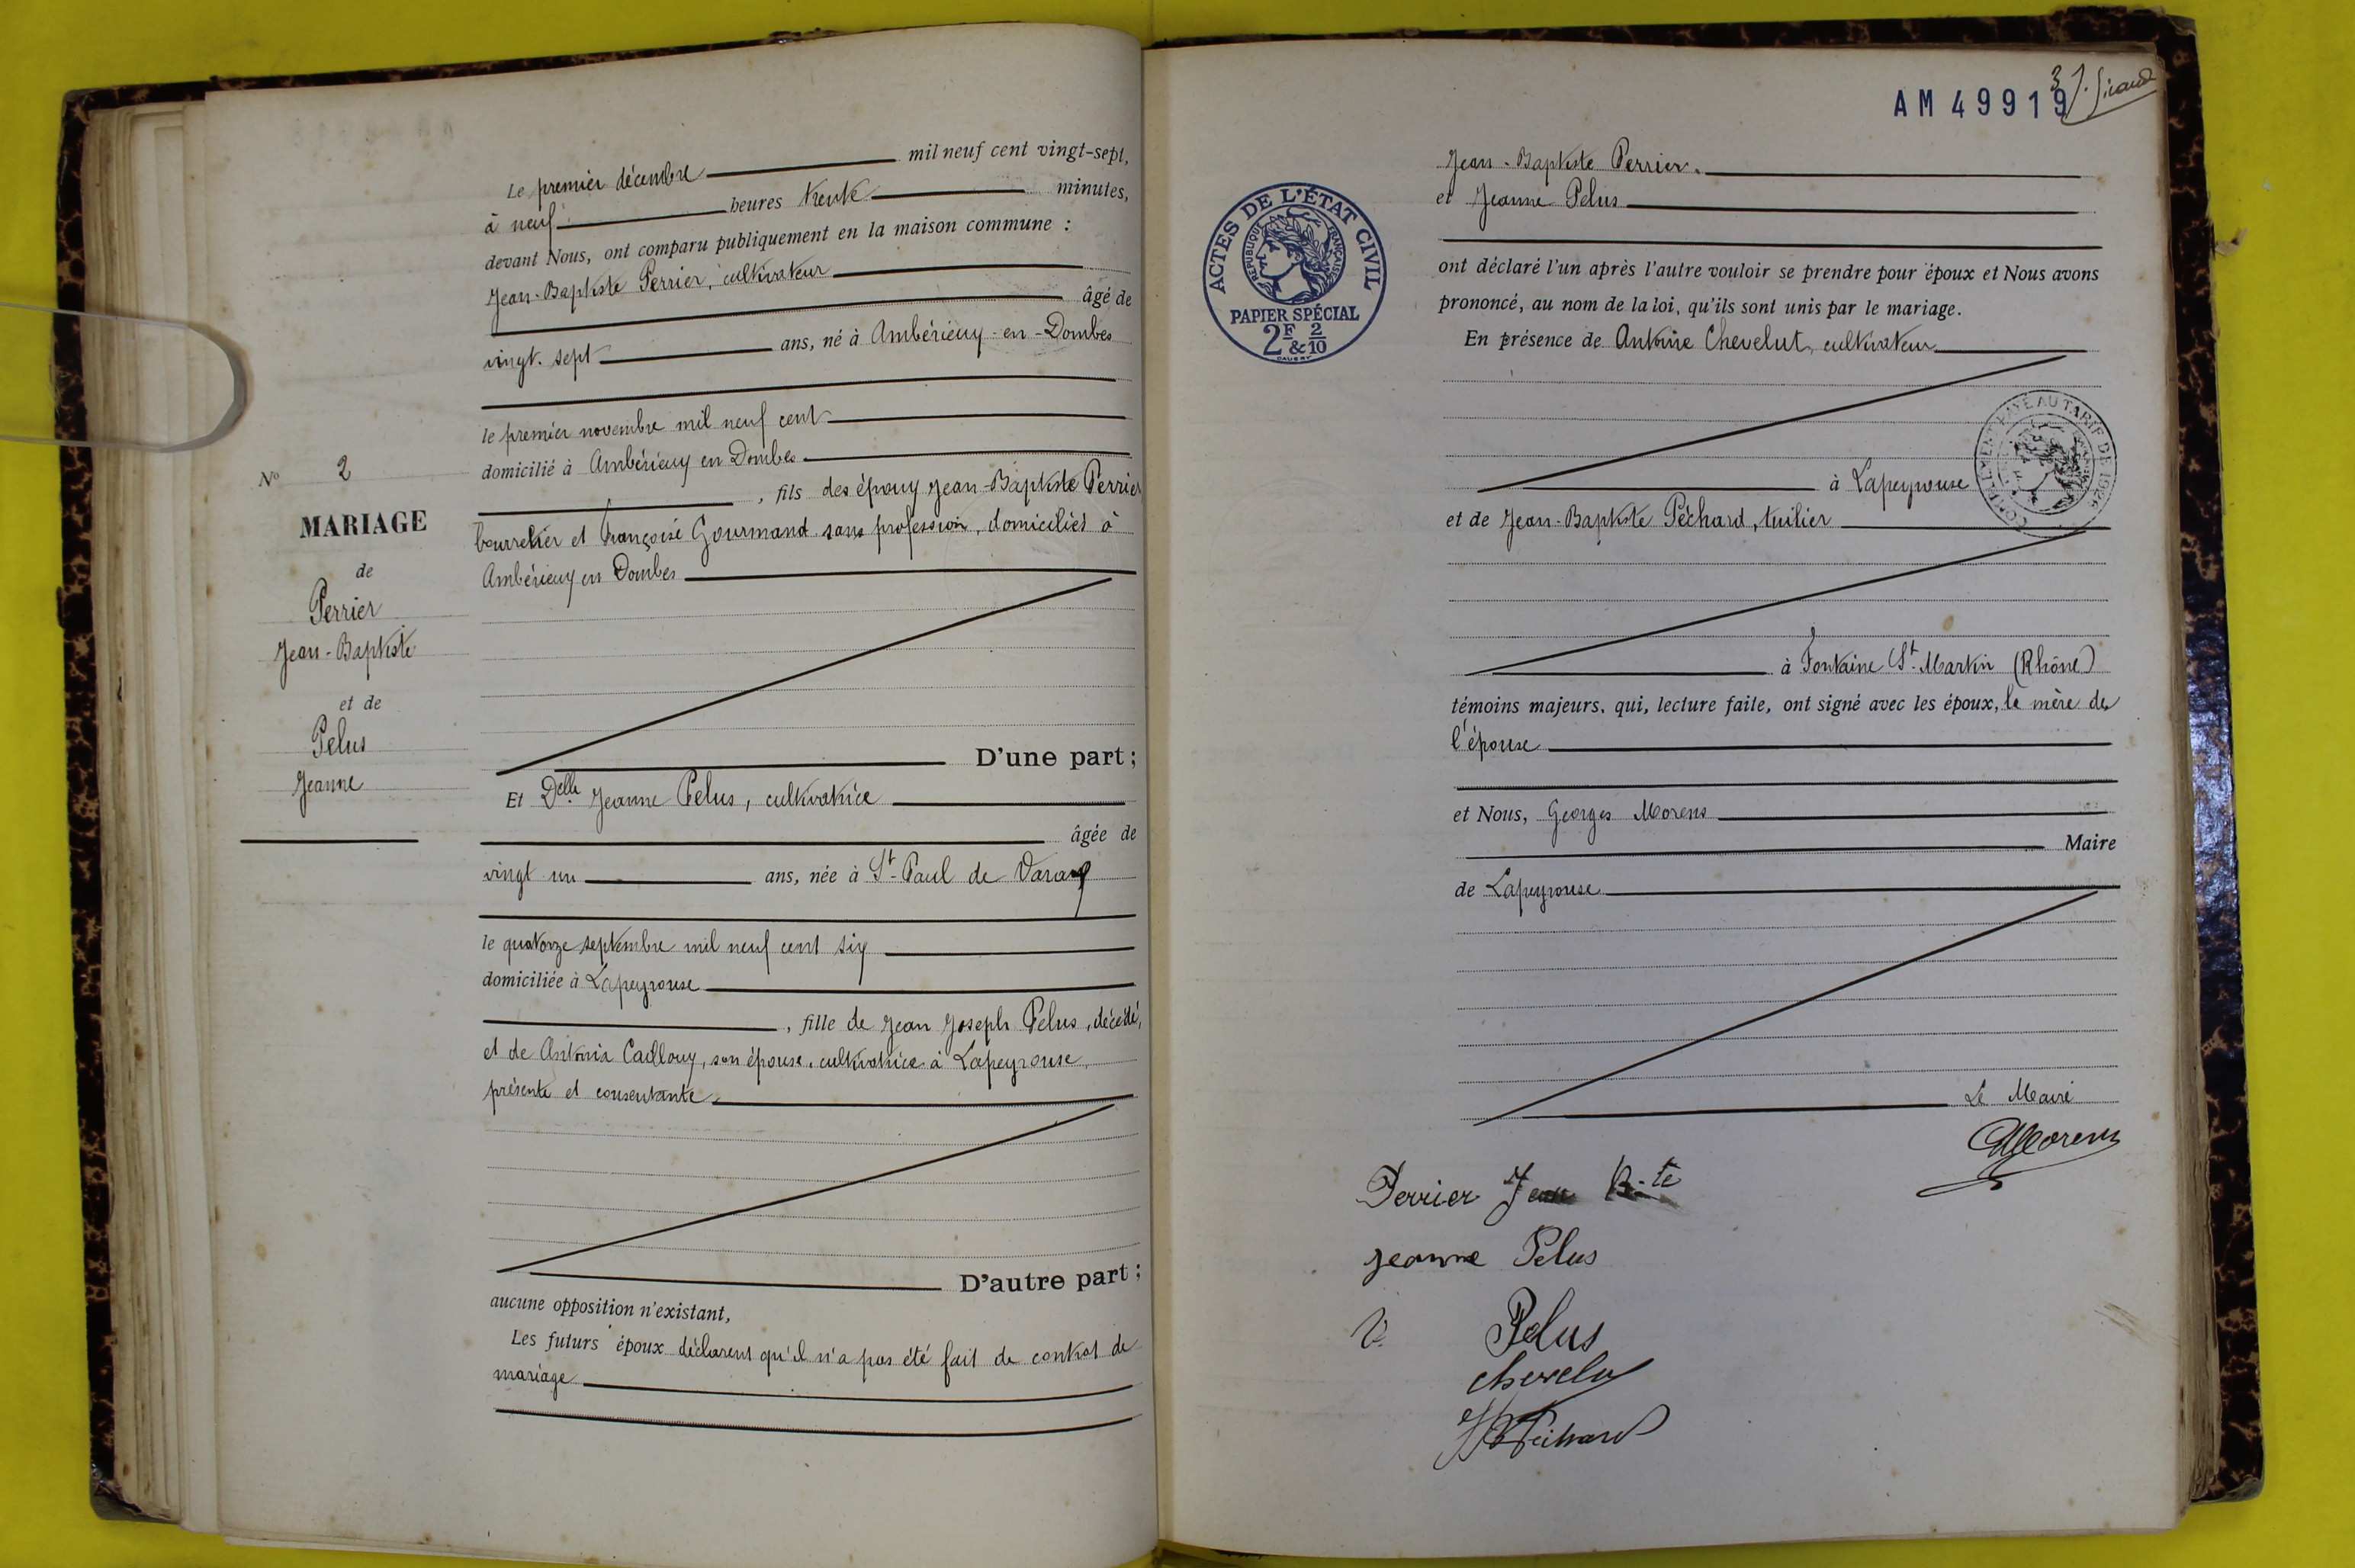 Le premier décembre mil neuf cent vingt-sept,
à neuf heures trente minutes,
devant Nous, ont comparu publiquement en la maison commune :
Jean-Baptiste Perrier, cultivateur
âgé de
vingt-sept ans, né à Ambérieux-en-Dombes
le premier novembre mil neuf cent
domicilié à Ambérieux en Dombes
, fils des époux Jean-Baptiste Perrier
bourrelier et Françoise Gourmand sans profession, domiciliés à
Ambérieux en Dombes
D'une part ;
Nº 2
MARIAGE
de
Perrier
Jean-Baptiste
et de
Pelus
Jeanne
Et Delle Jeanne Pelus, cultivatrice
âgée de
vingt un ans, née à St-Paul de Varax
le quatorze septembre mil neuf cent six
domiciliée à Lapeyrouse
, fille de Jean Joseph Pelus, décédé,
et de Antonia Cailloux, son épouse, cultivatrice à Lapeyrouse,
présente et consentante.
D'autre part ;
aucune opposition n'existant,
Les futurs époux déclarent qu'il n'a pas été fait de contrat de
mariage
AM 49919
3
J. Giraud
ACTES DE L'ÉTAT CIVIL
RÉPUBLIQUE FRANÇAISE
PAPIER SPÉCIAL
2F & 2/10
DAUSSY
Jean-Baptiste Perrier.
et Jeanne Pelus
ont déclaré l'un après l'autre vouloir se prendre pour époux et Nous avons
prononcé, au nom de la loi, qu'ils sont unis par le mariage.
En présence de Antoine Chevelut, cultivateur
COMPLÉMENT PAYÉ AU TARIF DE 1926
à Lapeyrouse
et de Jean-Baptiste Péchard, tuilier
à Fontaine St-Martin (Rhône)
témoins majeurs, qui, lecture faite, ont signé avec les époux, la mère de
l'épouse
et Nous, Georges Morens
Maire
de Lapeyrouse
Le Maire
GMorens
Perrier Jean B-te
Jeanne Pelus
V. Pelus
Chevelu
JB Péchard